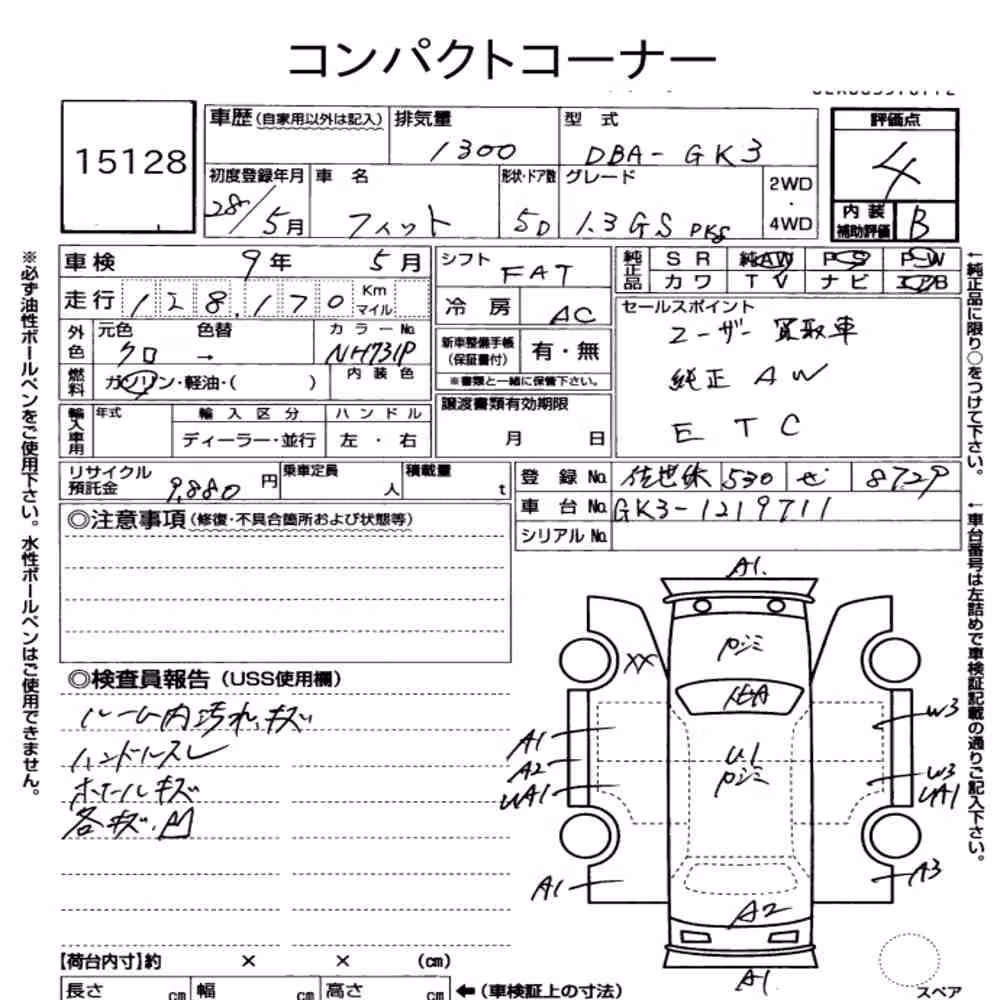 コンパクトコーナー
15128
車歴(自家用以外は記入) 排気量 型式 評価点
1300 DBA-GK3 4
初度登録年月 車名 形状・ドア数 グレード 2WD・4WD 内装補助評価 B
28/5月 フィット 5D 1.3GS PKG
車検 9年 5月 シフト FAT 純正品 SR 純AW PS PW
走行 128,170 Km マイル 冷房 AC カワ TV ナビ エアB
外色 元色 色替 カラーNo. セールスポイント
クロ → NH731P 新車整備手帳(保証書付) 有・無 ユーザー買取車
燃料 ガソリン・軽油・( ) 内装色 ※書類と一緒に保管下さい。 純正AW
輸入車用 年式 輸入区分 ハンドル 譲渡書類有効期限 ETC
ディーラー・並行 左・右 月 日
リサイクル預託金 9,880円 乗車定員 人 積載量 t 登録No. 佐世保 530 せ 8729
◎注意事項(修復・不具合箇所および状態等) 車台No. GK3-1219711
シリアルNo.
◎検査員報告(USS使用欄)
ルーム内汚れ、キズ
ハンドルスレ
ホイールキズ
各キズ・凹
A1.
XX
ワジミ
U1
ワジミ
A1
A2
UA1
A1
W3
W3
UA1
A3
A2
A1
【荷台内寸】約 × × (cm)
長さ cm 幅 cm 高さ cm ←(車検証上の寸法)
スペア
※必ず油性ボールペンをご使用下さい。水性ボールペンはご使用できません。
←純正品に限り○をつけて下さい。
←車台番号は左詰めで車検証記載の通りご記入下さい。